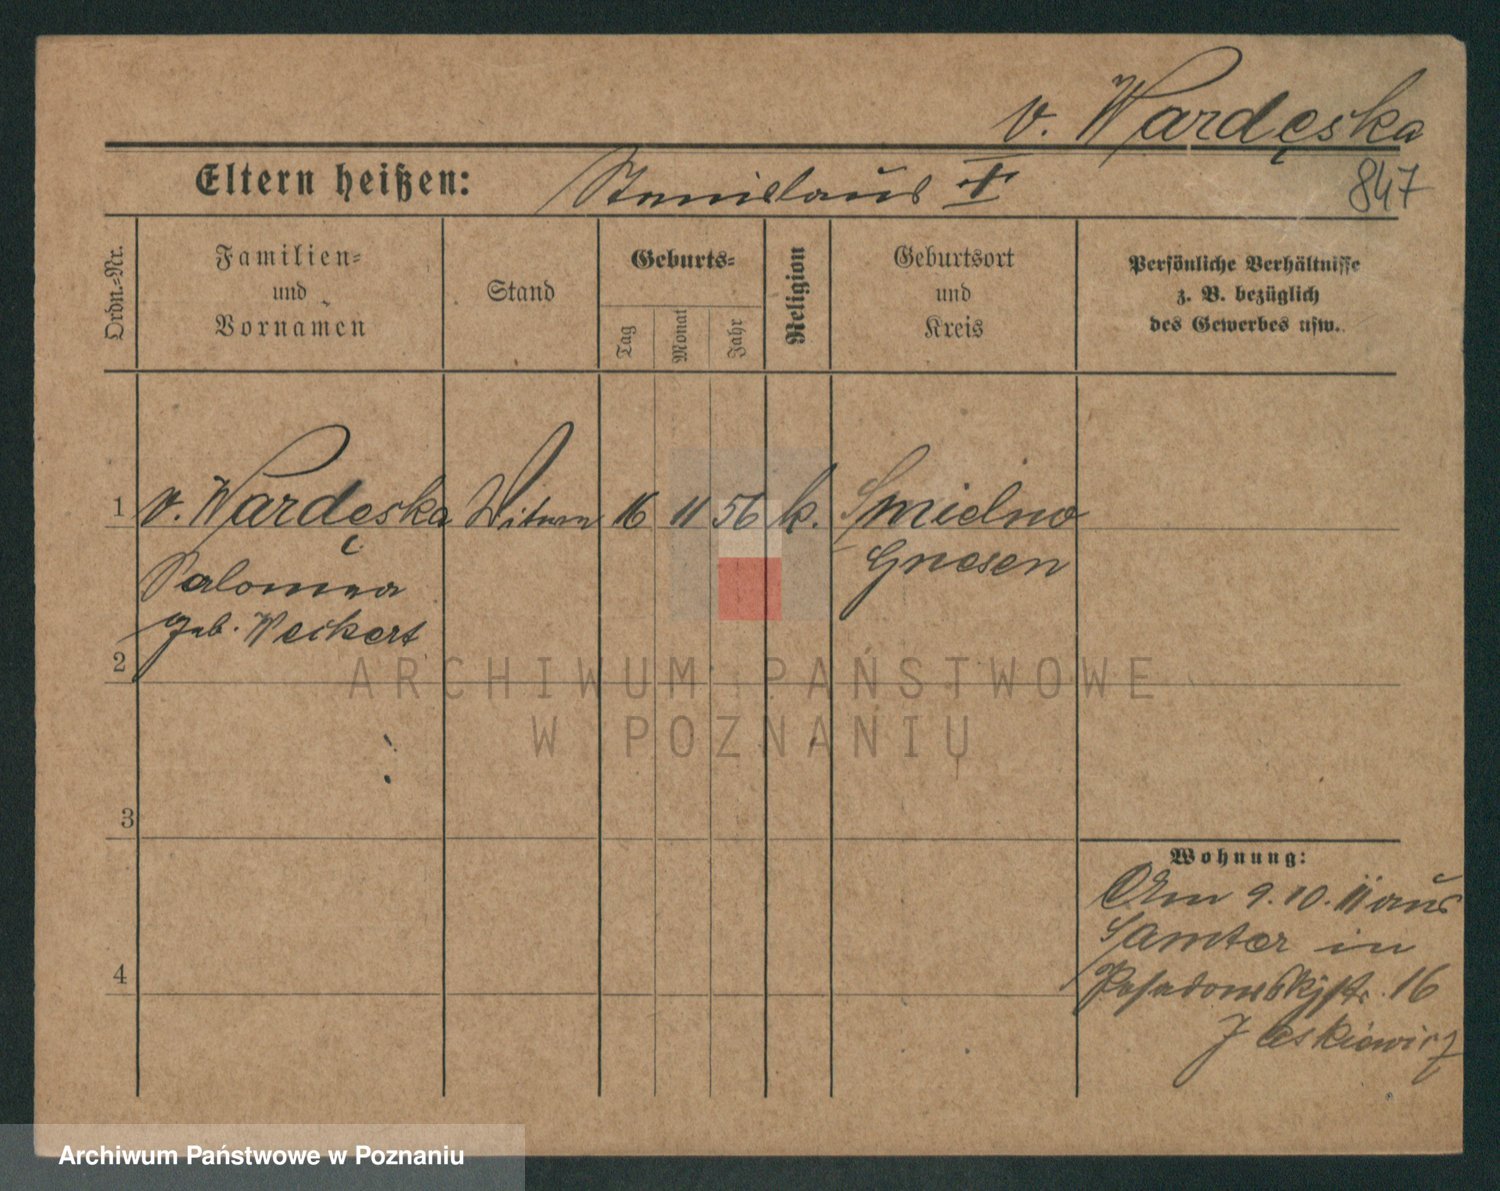 v. Wardęska
Eltern heißen: Stanislaus †
847
Ordn.-Nr.
Familien-
und
Vornamen
Stand
Geburts-
Tag
Monat
Jahr
Religion
Geburtsort
und
Kreis
Persönliche Verhältnisse
z. B. bezüglich
des Gewerbes usw.
1 v. Wardęska Witwe 16 11 56 k. Smielno
Gnesen
Salomea
geb. Weikert
2
3
4
Wohnung:
Am 9.10.11 aus
Samter in
Posadowskystr. 16
ARCHIWUM PAŃSTWOWE
W POZNANIU
Archiwum Państwowe w Poznaniu